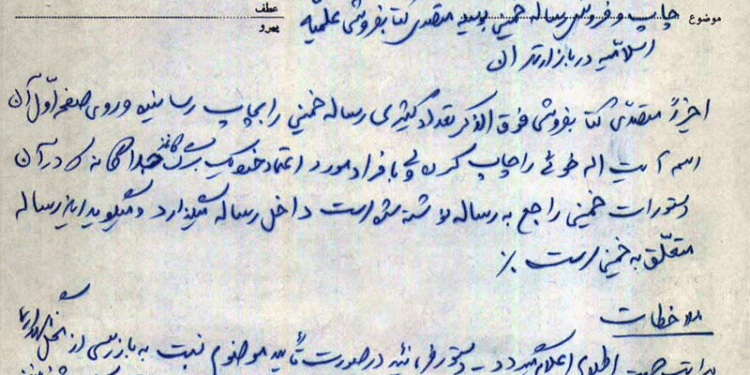 موضوع چاپ و فروش رساله خمینی بوسیله متصدی کتابفروشی علمیه عطف
اسلامیه در بازار تهران پیرو
اخیراً متصدی کتابفروشی فوق الذکر تعداد کثیری رساله خمینی را بچاپ رسانیده و روی صفحه اول آن
اسم آیت اله خوئی را چاپ کرده ولی با افراد مورد اعتماد خود یک برگ کاغذ جداگانه که در آن
دستورات خمینی راجع به رساله نوشته شده است داخل رساله میگذارد و میگوید این رساله
متعلق به خمینی است ٪
ملاحظات
مراتب جهت اطلاع اعلام میگردد دستور فرمائید در صورت تأیید موضوع نسبت به بازرسی از